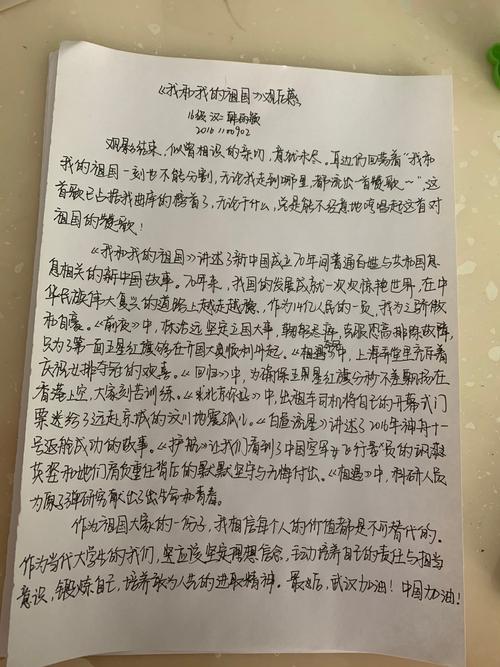 《我和我的祖国》观后感
16级 汉二
2016110902
观影结束，似曾相识的亲切，意犹未尽。耳边仍回荡着“我和
我的祖国一刻也不能分割，无论我走到哪里，都流出一首赞歌~”，这
首歌已占据我曲库的榜首了，无论干什么，总是能不经意地哼唱起这首对
祖国的赞歌！
《我和我的祖国》讲述了新中国成立70年间普通百姓与共和国息
息相关的新中国故事。70年来，我国的发展成就一次次惊艳世界，在中
华民族伟大复兴的道路上越走越稳，作为14亿人民的一员，我为之骄傲
和自豪。《前夜》中，林治远坚定立国大事，克服恐高排除故障，
只为了第一面五星红旗能够在开国大典顺利升起。《相遇》中，上海弄堂里充斥着
庆祝女排夺冠的欢喜。《回归》中，为确保五星红旗分秒不差飘扬在
香港上空，大家刻苦训练。《北京你好》中，出租车司机将自己的开幕式门
票送给了远赴京城的汶川地震孤儿。《白昼流星》讲述了2016年神舟十一
号返航成功的故事。《护航》让我们看到了中国空军女飞行员的飒爽
英姿和她们肩负重任背后的默默坚守与无悔付出。《相遇》中，科研人员
为原子弹研究献出了生命和青春。
作为祖国大家的一份子，我相信每个人的价值都是不可替代的。
作为当代大学生的我们，更应该坚定理想信念，主动培养自己的责任与担当
意识，锻炼自己，培养敢为人先的进取精神。最后，武汉加油！中国加油！